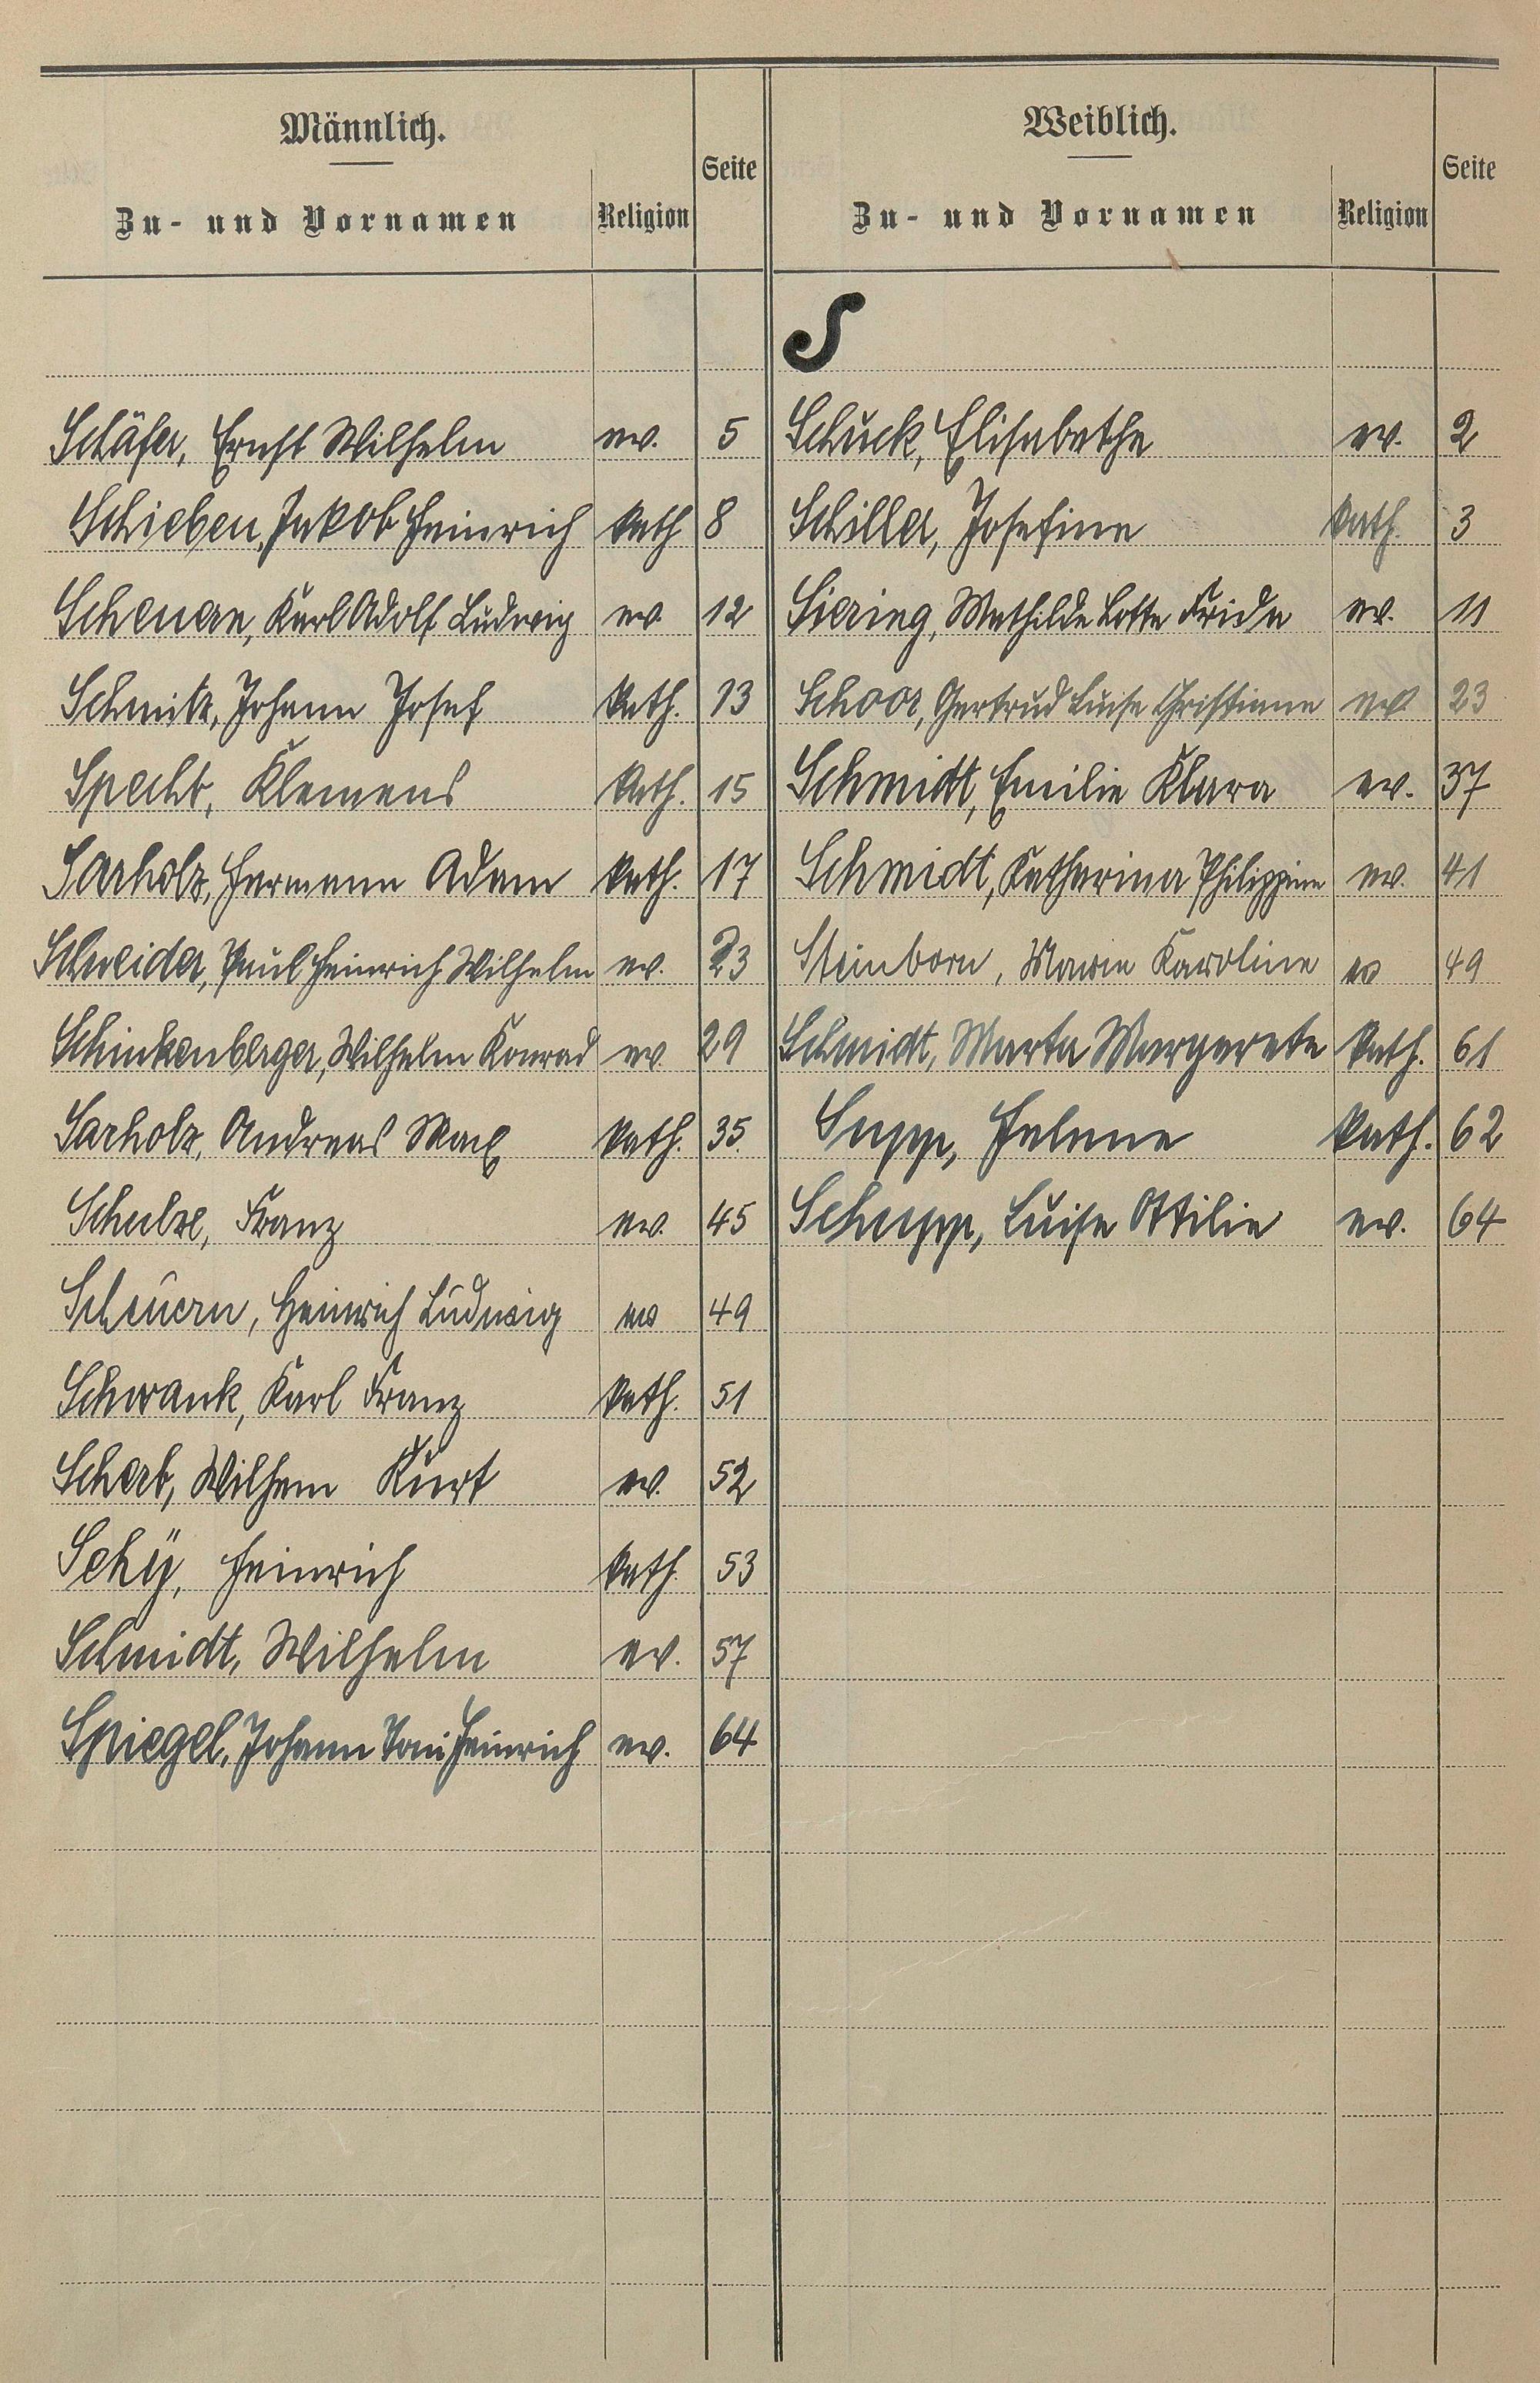 Männlich.
Zu- und Vornamen
Religion
Seite
Schäfer, Ernst Wilhelm ev. 5
Schieben, Jakob Heinrich kath 8
Scheuern, Karl Adolf Ludwig ev. 12
Schmitz, Johann Josef kath. 13
Specht, Klemens kath. 15
Sarholz, Hermann Adam kath. 17
Schneider, Paul Heinrich Wilhelm ev. 23
Schinkenberger, Wilhelm Konrad ev. 29
Sarholz, Andreas Max kath. 35.
Schulze, Franz ev. 45
Scheuern, Heinrich Ludwig ev 49
Schwank, Karl Franz kath. 51
Scherb, Wilhem Kurt ev. 52
Schÿ, Heinrich kath. 53
Schmidt, Wilhelm ev. 57
Spiegel, Johann Toni Heinrich ev. 64
Weiblich.
Zu- und Vornamen
Religion
Seite
S
Schuck, Elisabethe ev. 2
Schiller, Josefine kath. 3
Siering, Mathilde Lotte Frida ev. 11
Schoor, Gertrud Luise Christiane ev 23
Schmidt, Emilie Klara ev. 37
Schmidt, Katharina Philippine ev. 41
Steinborn, Marie Karoline ev 49
Schmidt, Marta Margarete kath. 61
Supp, Helene kath. 62
Schupp, Luise Ottilie ev. 64